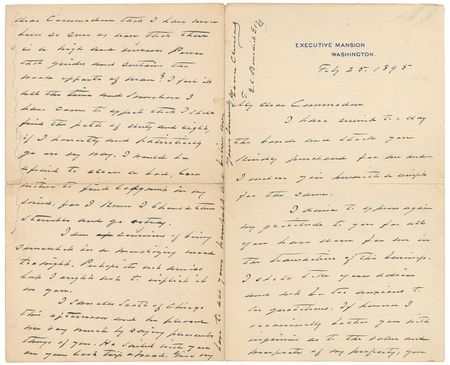 EXECUTIVE MANSION
WASHINGTON.
Feby 25. 1895
My dear Commodore
I have received to-day
the bonds and stock you
kindly purchased for me and
I enclose you herewith a cheque
for the same.
I desire to express again
my gratitude to you for all
you have done for me in
the transaction of this business.
I shall take your advice
and not be too anxious to
see quotations. If however I
occasionally bother you with
inquiries as to the value and
prospects of my property, you
dear Commodore that I have never
been so sure as now that there
is a high and unseen Power
that guides and sustains the
weak efforts of man? I feel it
all the time and somehow I
have come to expect that I shall
find the path of duty and right,
if I honestly and patriotically
go on my way. I would be
afraid to allow a bad, low
motive to find lodgment in my
mind, for I know I should then
stumble and go astray.
I am conscious of being
somewhat in a moralizing mood
to-night. Perhaps its not amiss
but I ought not to inflict it
on you.
I saw Scott of Chicago
this afternoon and he pleased
me very much by saying pleasant
things of you. He sailed with you
on your last trip abroad. Give my
love to all your household and believe me
Yours sincerely Grover Cleveland
To E.C. Benedict Esq